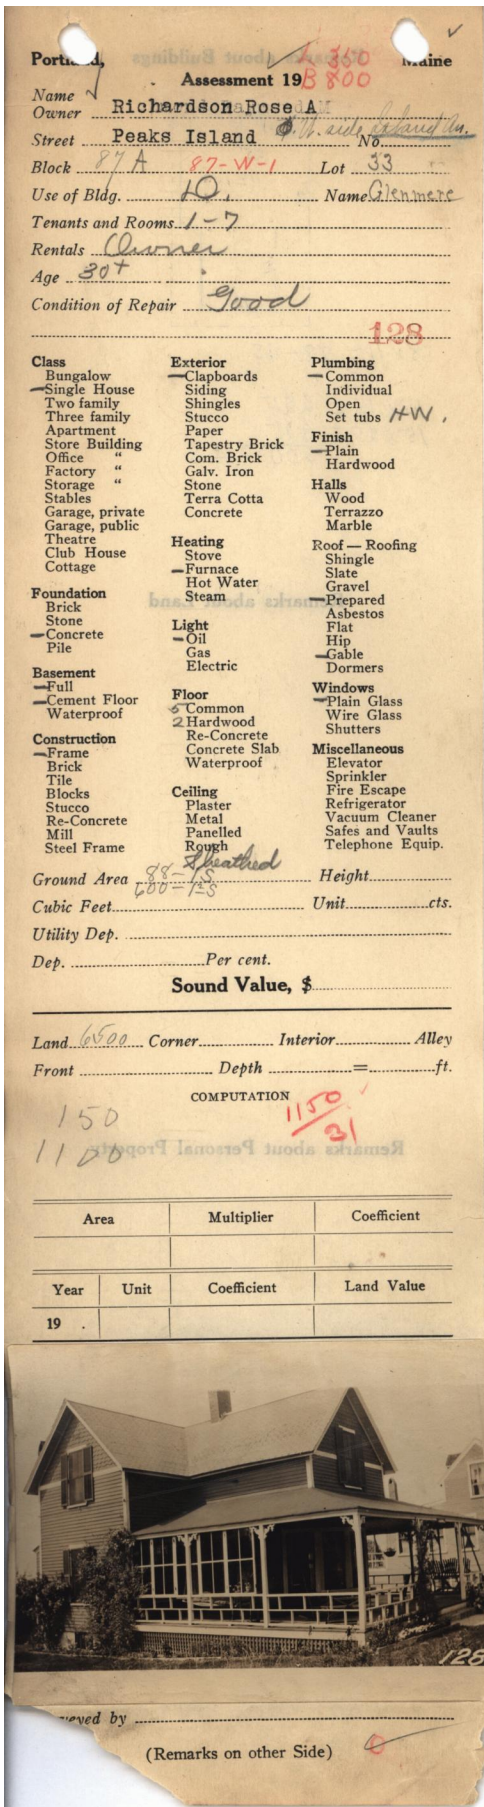 Portland, L 350 Maine
Assessment 19 B 800
Name
Owner Richardson Rose A
Street Peaks Island N.W. side Island Av. No.
Block 87 A 87-W-1 Lot 33
Use of Bldg. D. Name Glenmere
Tenants and Rooms 1-7
Rentals Owner
Age 30+
Condition of Repair Good
128
Class
Bungalow
Single House
Two family
Three family
Apartment
Store Building
Office "
Factory "
Storage "
Stables
Garage, private
Garage, public
Theatre
Club House
Cottage
Foundation
Brick
Stone
Concrete
Pile
Basement
Full
Cement Floor
Waterproof
Construction
Frame
Brick
Tile
Blocks
Stucco
Re-Concrete
Mill
Steel Frame
Exterior
Clapboards
Siding
Shingles
Stucco
Paper
Tapestry Brick
Com. Brick
Galv. Iron
Stone
Terra Cotta
Concrete
Heating
Stove
Furnace
Hot Water
Steam
Light
Oil
Gas
Electric
Floor
5 Common
2 Hardwood
Re-Concrete
Concrete Slab
Waterproof
Ceiling
Plaster
Metal
Panelled
Rough
Sheathed
Plumbing
Common
Individual
Open
Set tubs HW.
Finish
Plain
Hardwood
Halls
Wood
Terrazzo
Marble
Roof — Roofing
Shingle
Slate
Gravel
Prepared
Asbestos
Flat
Hip
Gable
Dormers
Windows
Plain Glass
Wire Glass
Shutters
Miscellaneous
Elevator
Sprinkler
Fire Escape
Refrigerator
Vacuum Cleaner
Safes and Vaults
Telephone Equip.
Ground Area 88-1S Height
600-1½S
Cubic Feet Unit cts.
Utility Dep.
Dep. Per cent.
Sound Value, $
Land 6500 Corner Interior Alley
Front Depth = ft.
COMPUTATION
150 1150
1100 31
Area Multiplier Coefficient
Year Unit Coefficient Land Value
19 .
128
veyed by
(Remarks on other Side) 0